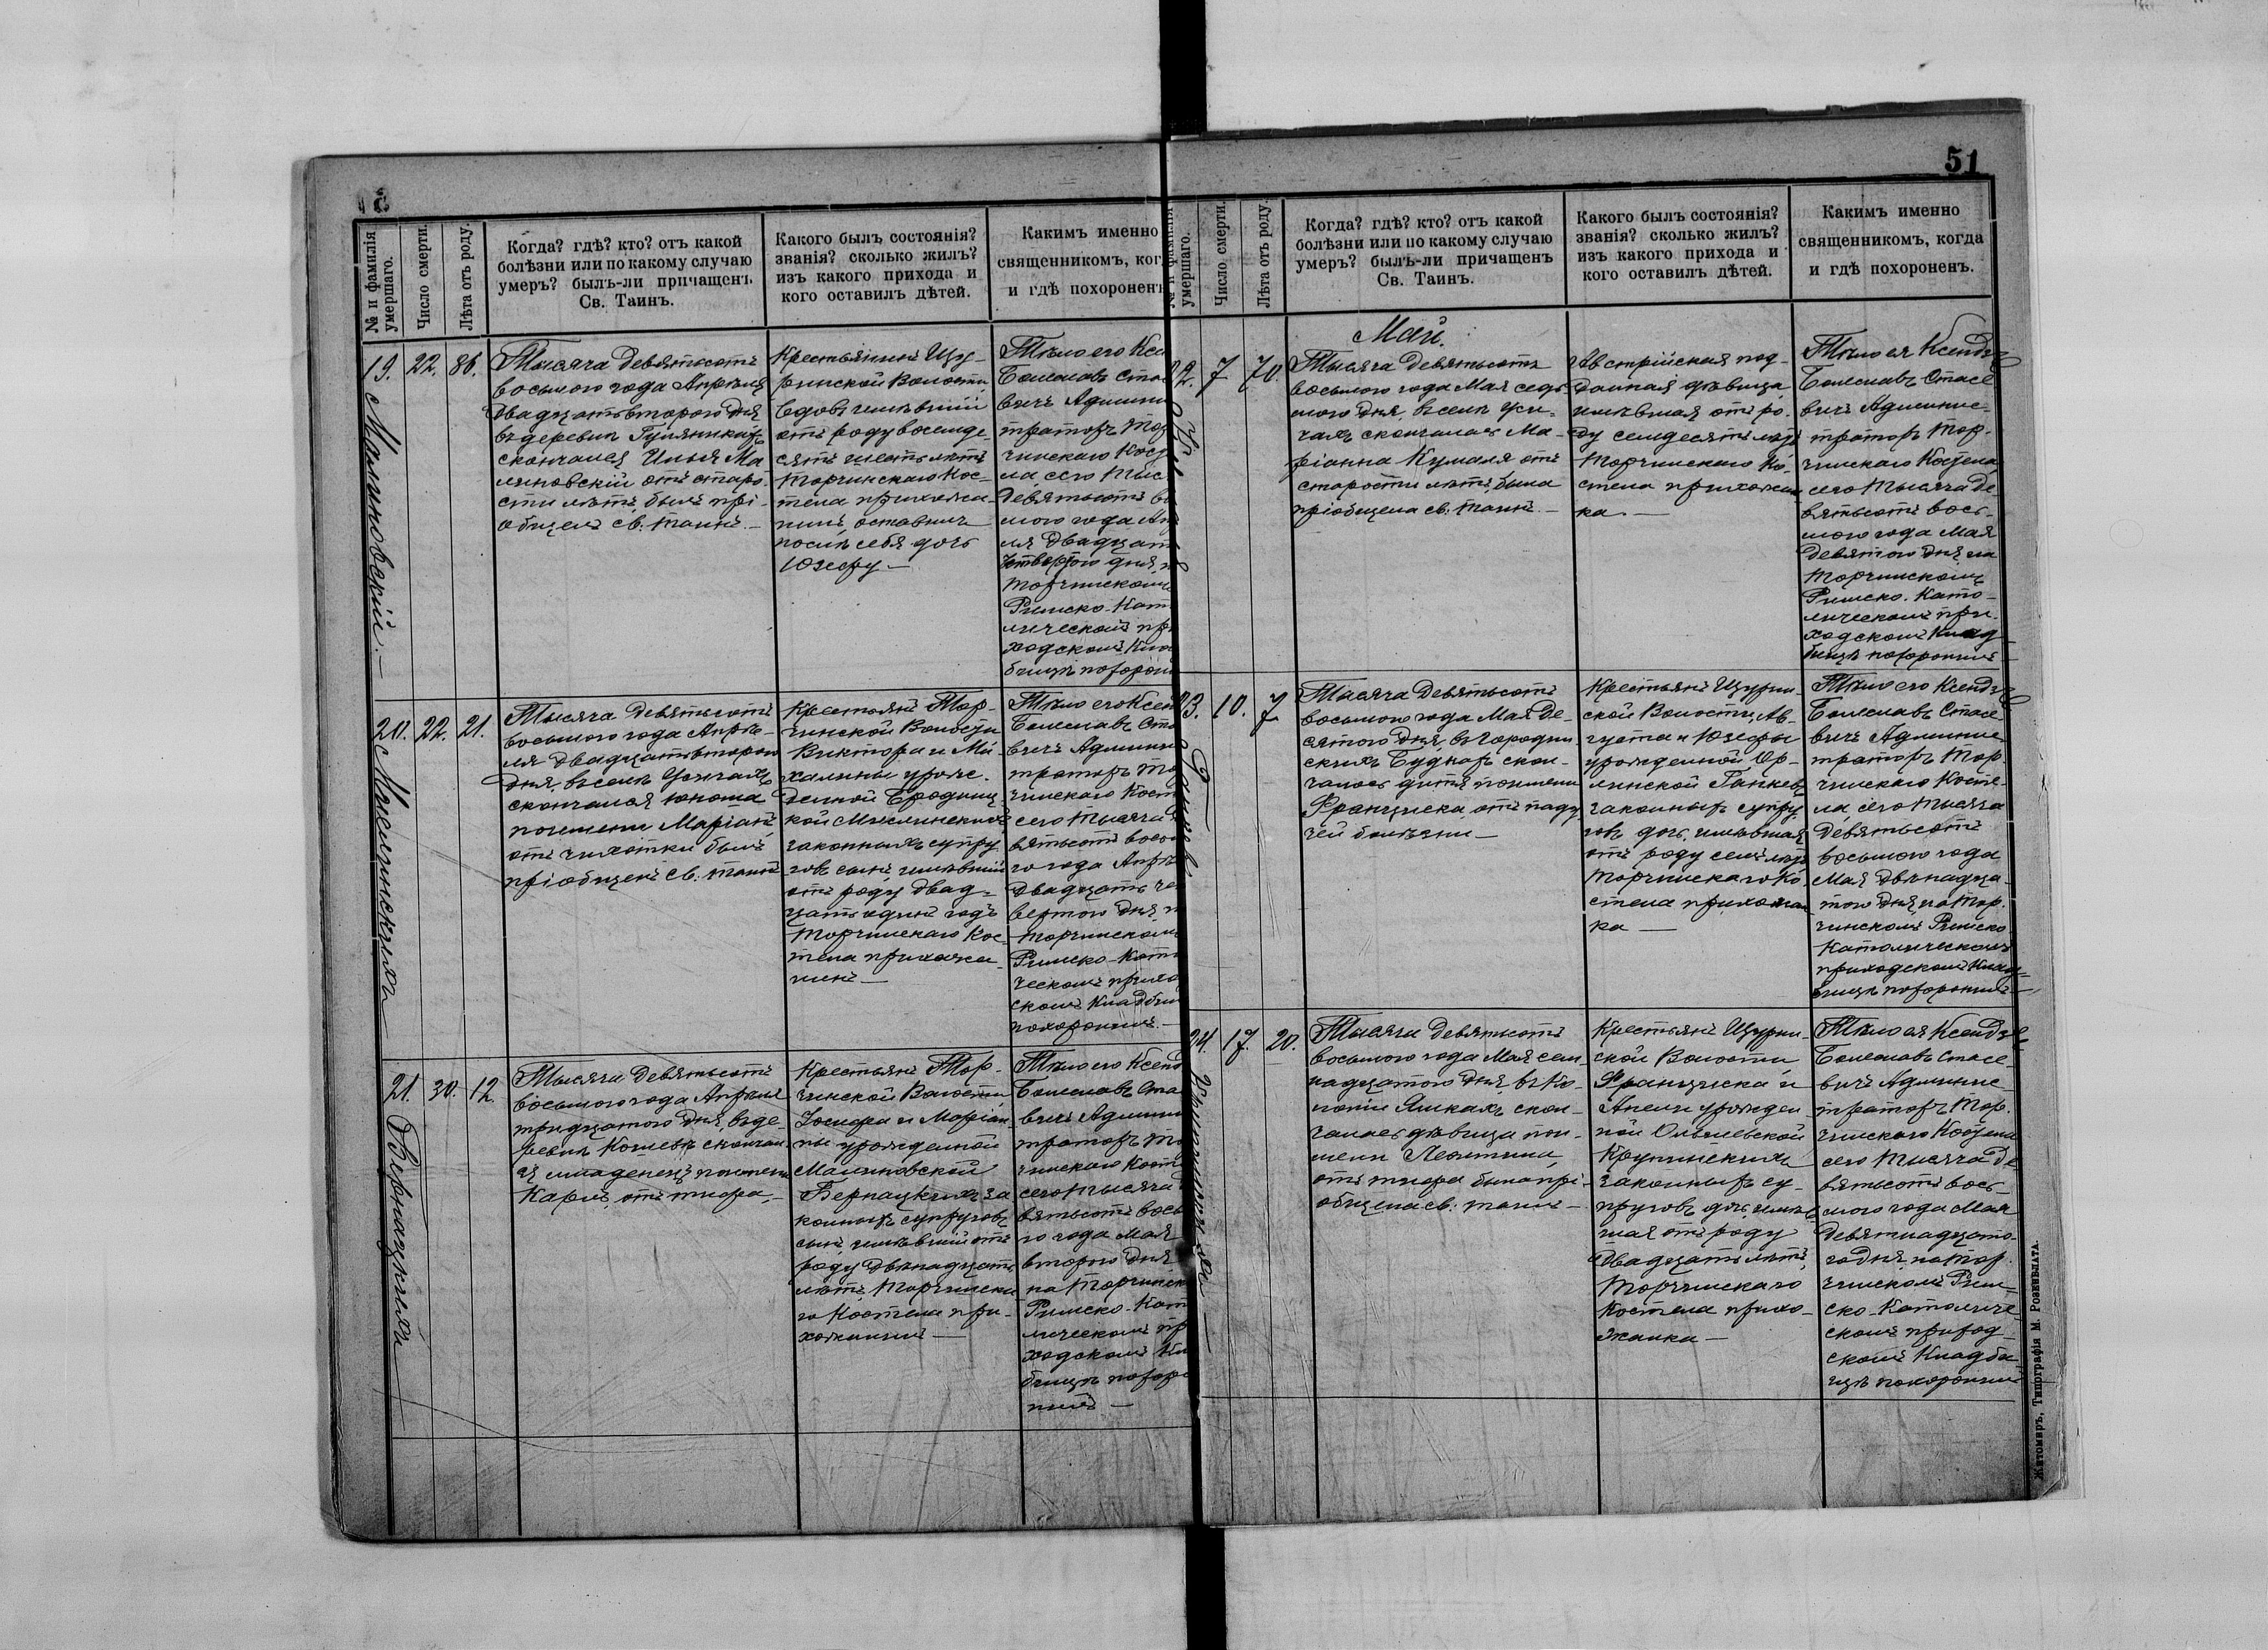 № и фамилія
умершаго.
Число смерти.
Лѣта отъ роду.
Когда? гдѣ? кто? отъ какой
болѣзни или по какому случаю
умеръ? былъ-ли причащенъ
Св. Таинъ.
Какого былъ состоянія?
званія? сколько жилъ?
изъ какого прихода и
кого оставилъ дѣтей.
Какимъ именно
священникомъ, ког
и гдѣ похоронен
19.
Малиновскій.—
22.
86.
Тысяча девятьсотъ
восьмого года Апрѣля
двадцать второго дня
въ деревнѣ Гуляникахъ
скончался Илья Ма
линовскій отъ старо
сти лѣтъ, былъ прі-
общенъ св. таинъ.—
Крестьянинъ Щу-
ринской Волости
вдовъ имѣвшій
отъ роду восемде-
сятъ шесть лѣтъ
Торчинскаго Кос-
тела прихожа
нинъ, оставилъ
послѣ себя дочь
Юзефу—
Тѣло его Ксен
Болеславъ Стас
вичъ Админи
траторъ Тор
чинскаго Кост
ла, сего Тыс
девятьсотъ во
мого года Ап
ля двадцат
четвертого дня, н
Торчинскомъ
Римско-Кат
лическомъ пр
ходскомъ Кла
бищѣ похорон
20.
Мислинскихъ
22.
21.
Тысяча девятьсотъ
восьмого года Апрѣ-
ля двадцать второго
дня, въ селѣ Усичахъ
скончался юноша
по имени Маріанъ
отъ чихотки былъ
пріобщенъ св. таинъ
Крестьянъ Тор-
чинской Волости
Виктора и Ми
халины урож-
денной Бродниц
кой Мислинскихъ
законныхъ супру
говъ сынъ, имѣвшій
отъ роду двад-
цать одинъ годъ
Торчинскаго Кос-
тела прихожа
нинъ—
Тѣло его Ксен
Болеславъ Ста
вичъ Админи
траторъ То
чинскаго Кост
сего Тысяча
вятьсотъ вось
го года Апрѣ
двадцать че
вертого дня, н
Торчинском
Римско-Като
ческомъ прихо
скомъ Кладби
похоронилъ.—
21.
Бернацкихъ
30.
12.
Тысяча девятьсотъ
восьмого года Апрѣля
тридцатого дня, въ де-
ревнѣ скончал
ся младенецъ по имени
Карлъ, отъ тифа,—
Крестьянъ Тор-
чинской Волости
Іосифа и Маріан
ны урожденной
Малиновской
Бернацкихъ за
конныхъ супруговъ
сынъ, имѣвшій отъ
роду двѣнадцать
лѣтъ, Торчинска
го Костела при-
хожанинъ—
Тѣло его Ксенд
Болеславъ Ста
вичъ Админи
траторъ То
чинскаго Кост
сего тысяча
вятьсотъ вось
го года Мая
второго дня
на Торчинск
Римско-Кат
лическомъ пр
ходскомъ Кл
бищѣ похоро
нилъ—
51
№ и фамилія
умершаго.
Число смерти.
Лѣта отъ роду.
Когда? гдѣ? кто? отъ какой
болѣзни или по какому случаю
умеръ? былъ-ли причащенъ
Св. Таинъ.
Какого былъ состоянія?
званія? сколько жилъ?
изъ какого прихода и
кого оставилъ дѣтей.
Какимъ именно
священникомъ, когда
и гдѣ похороненъ.
Май.
22.
7
70.
Тысяча девятьсотъ
восьмого года Мая седь
мого дня, въ селѣ Уси-
чахъ скончалась Ма-
ріанна Кумаля отъ
старости лѣтъ, была
пріобщена св. таинъ.—
Австрійская под-
данная дѣвица
имѣвшая отъ ро-
ду семдесятъ лѣтъ
Торчинскаго Ко-
стела прихожан
ка.—
Тѣло ея Ксендзъ
Болеславъ Стасе
вичъ Админис-
траторъ Тор-
чинскаго Костела,
сего Тысяча де
вятьсотъ вось-
мого года Мая
девятого дня, на
Торчинскомъ
Римско-Като-
лическомъ при-
ходскомъ Клад
бищѣ похоронилъ—
23.
10.
7
Тысяча девятьсотъ
восьмого года Мая де-
сятого дня, въ Городин
скихъ Будкахъ скон-
чалось дитя по имени
Франциска, отъ паду
чей болѣзни—
Крестьянъ Щурин-
ской Волости, Ав-
густа и Юзефы
урожденной Ор-
линской
законныхъ супру
говъ дочь имѣвшая
отъ роду семь лѣтъ
Торчинскаго Ко
стела прихожан
ка—
Тѣло его Ксендзъ
Болеславъ Стасе
вичъ Админис
траторъ Тор-
чинскаго Косте-
ла, сего тысяча
девятьсотъ
восьмого года
Мая двѣнадца-
того дня, на Тор-
чинскомъ Римско
Католическомъ
приходскомъ Клад-
бищѣ похоронилъ—
24.
17.
20.
Тысяча девятьсотъ
восьмого года Мая сем
надцатого дня, въ Ко-
лоніи Ямкахъ скон-
чалась дѣвица по и-
мени Леонтина,
отъ тифа была прі-
общена св. таинъ—
Крестьянъ Щурин-
ской Волости,
Франциска и
Анели урожден-
ной
Крупинскихъ
законныхъ су-
пруговъ дочь, имѣв
шая отъ роду
двадцать лѣтъ,
Торчинскаго
Костела прихо-
жанка—
Тѣло ея Ксендзъ
Болеславъ Стасе
вичъ Админис
траторъ Тор-
чинскаго Костела
сего Тысяча де
вятьсотъ вось-
мого года Мая
девятнадцато-
го дня, на Тор-
чинскомъ Рим-
ско-Католиче
скомъ приход-
скомъ Кладби
щѣ похоронилъ
Житомиръ, Типографія М. Розенблата.